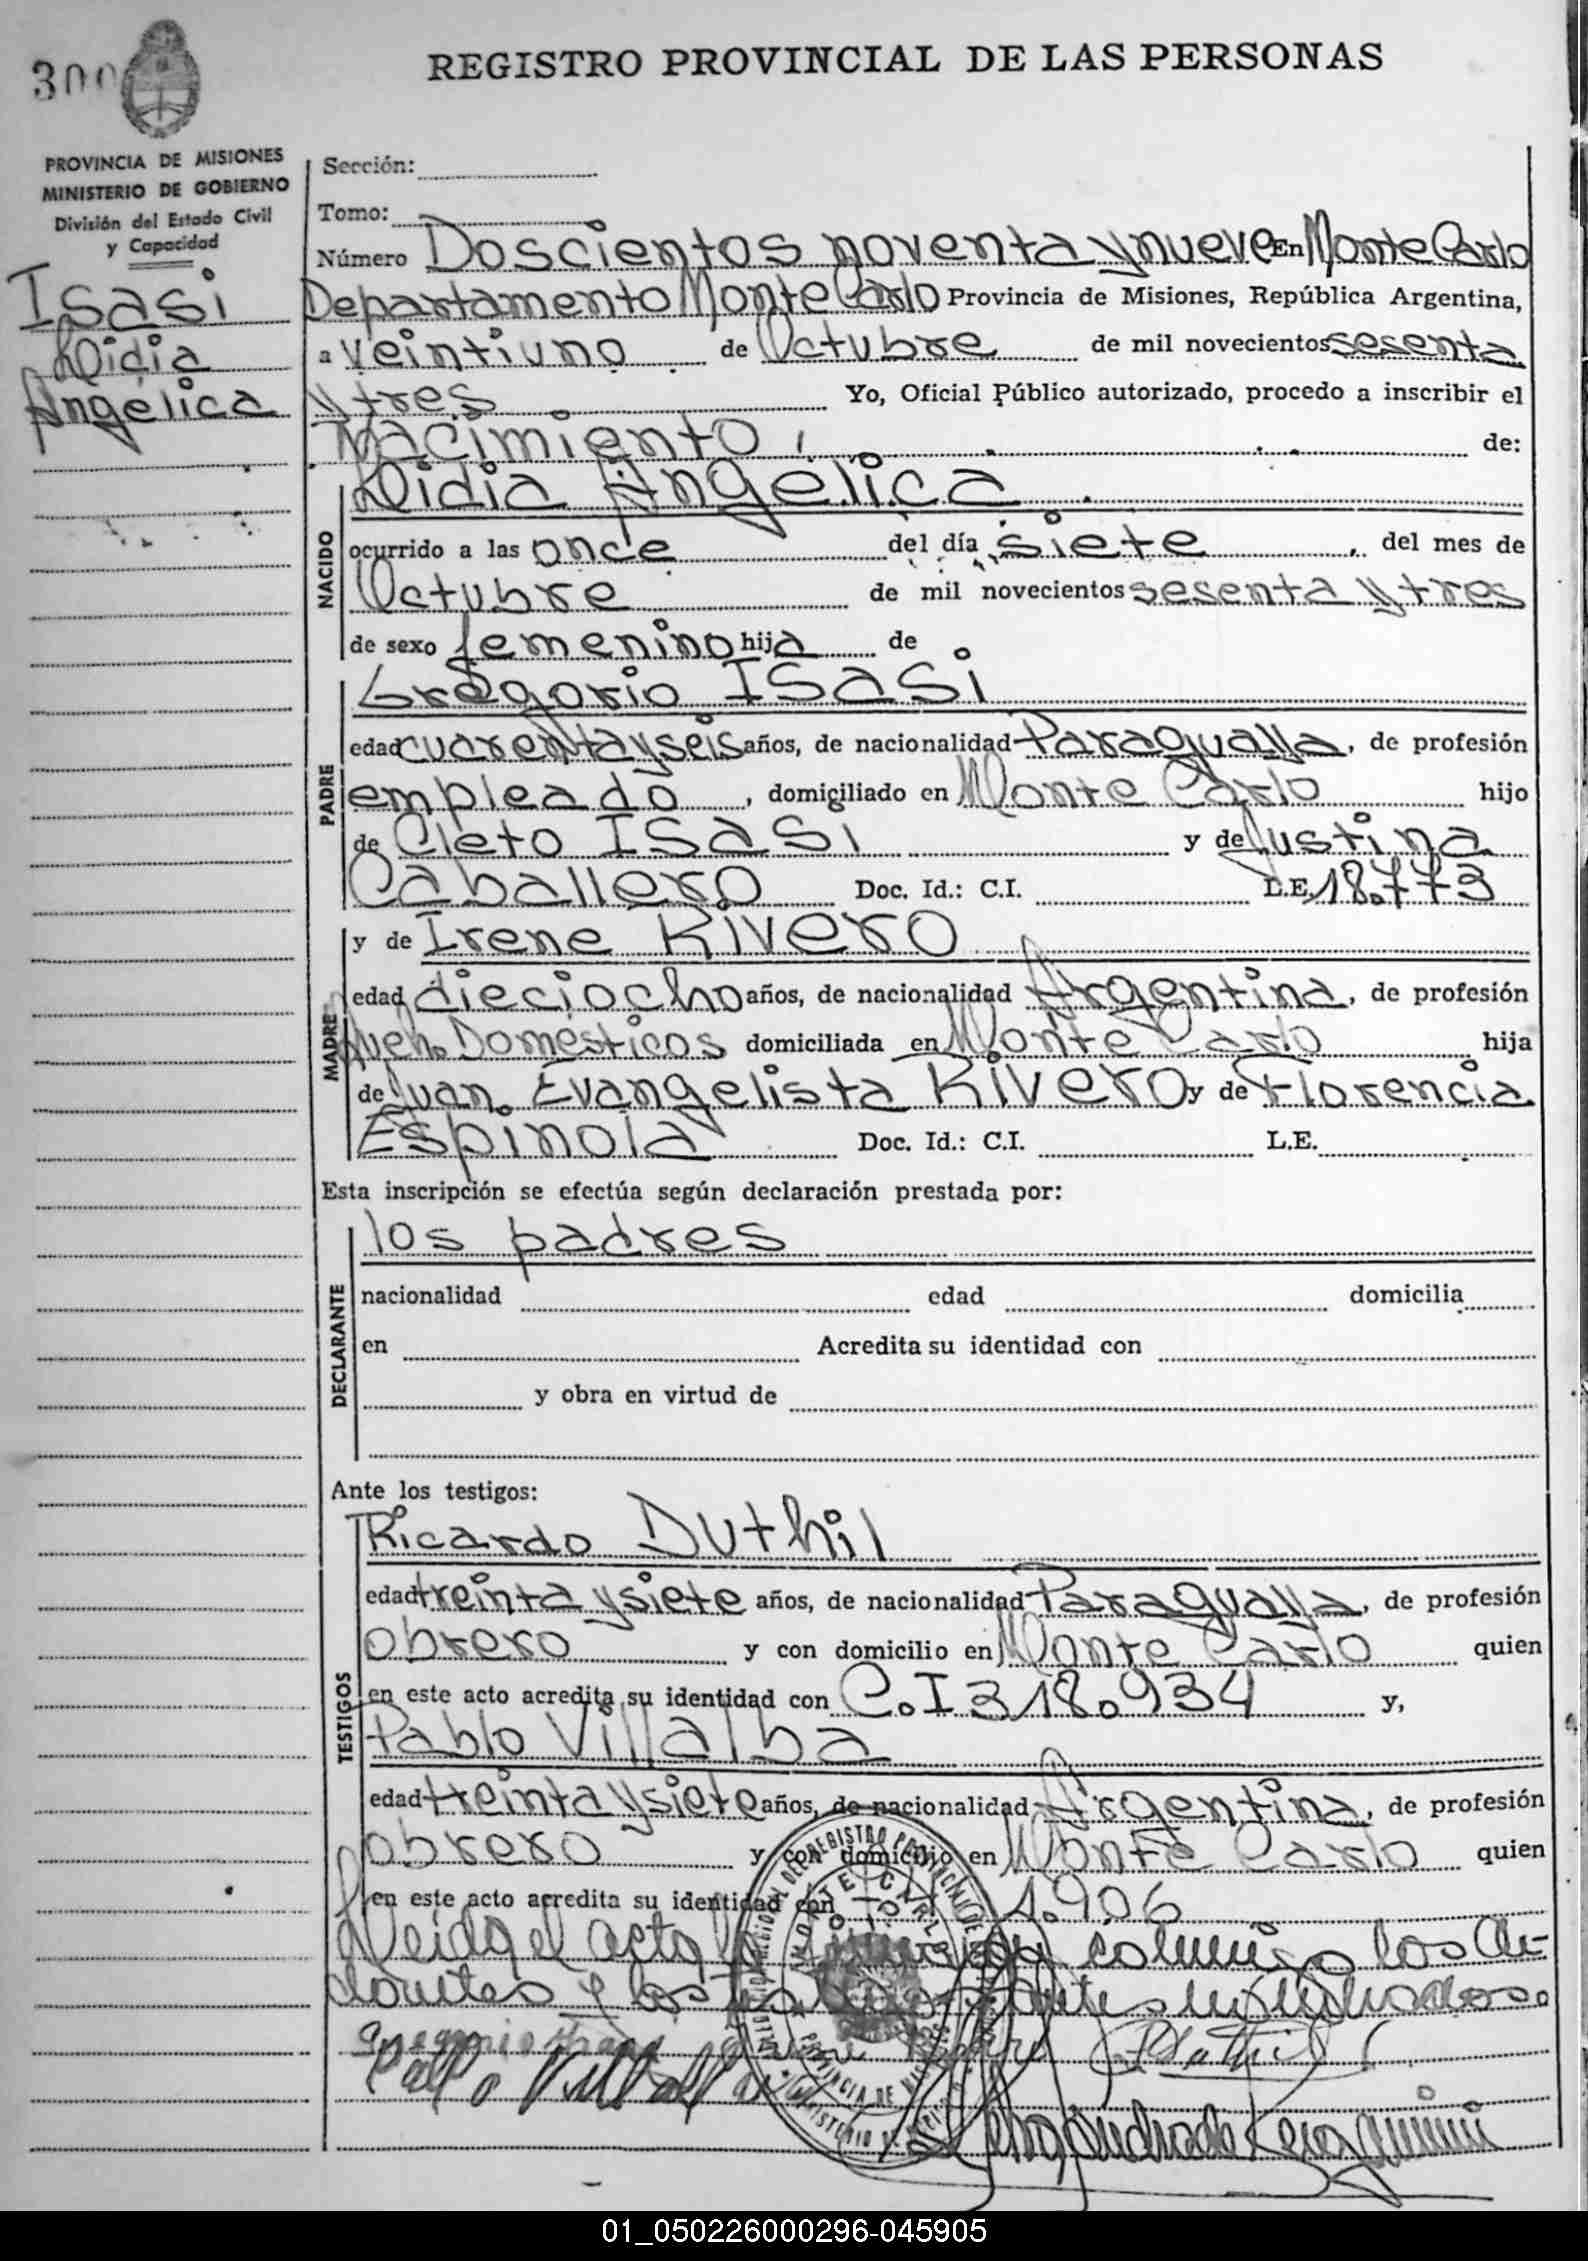 300
REGISTRO PROVINCIAL DE LAS PERSONAS
PROVINCIA DE MISIONES
MINISTERIO DE GOBIERNO
División del Estado Civil
y Capacidad
Isasi
Lidia
Angélica
Sección:
Tomo:
Número Doscientos noventa y nueve En Monte Carlo
Departamento Monte Carlo Provincia de Misiones, República Argentina,
a veintiuno de Octubre de mil novecientos sesenta
y tres Yo, Oficial Público autorizado, procedo a inscribir el
Nacimiento de:
NACIDO
Lidia Angélica
ocurrido a las once del día siete, del mes de
Octubre de mil novecientos sesenta y tres
de sexo femenino hija de
PADRE
Gregorio Isasi
edad cuarenta y seis años, de nacionalidad Paraguaya, de profesión
empleado, domiciliado en Monte Carlo hijo
de Cleto Isasi y de Justina
Caballero Doc. Id.: C.I. L.E. 18.773
MADRE
y de Irene Rivero
edad dieciocho años, de nacionalidad Argentina, de profesión
Queh. Domésticos domiciliada en Monte Carlo hija
de Juan Evangelista Rivero y de Florencia
Espinola Doc. Id.: C.I. L.E.
Esta inscripción se efectúa según declaración prestada por:
DECLARANTE
los padres
nacionalidad edad domicilia
en Acredita su identidad con
y obra en virtud de
Ante los testigos:
TESTIGOS
Ricardo Duthil
edad treinta y siete años, de nacionalidad Paraguaya, de profesión
obrero y con domicilio en Monte Carlo quien
en este acto acredita su identidad con C.I 318.934 y,
Pablo Villalba
edad treinta y siete años, de nacionalidad Argentina, de profesión
obrero y con domicilio en Monte Carlo quien
en este acto acredita su identidad con 1.906
Leida el acta la conmigo los
y los
Pablo Villalba
MONTE CARLO
PROVINCIA DE MISIONES
01_050226000296-045905